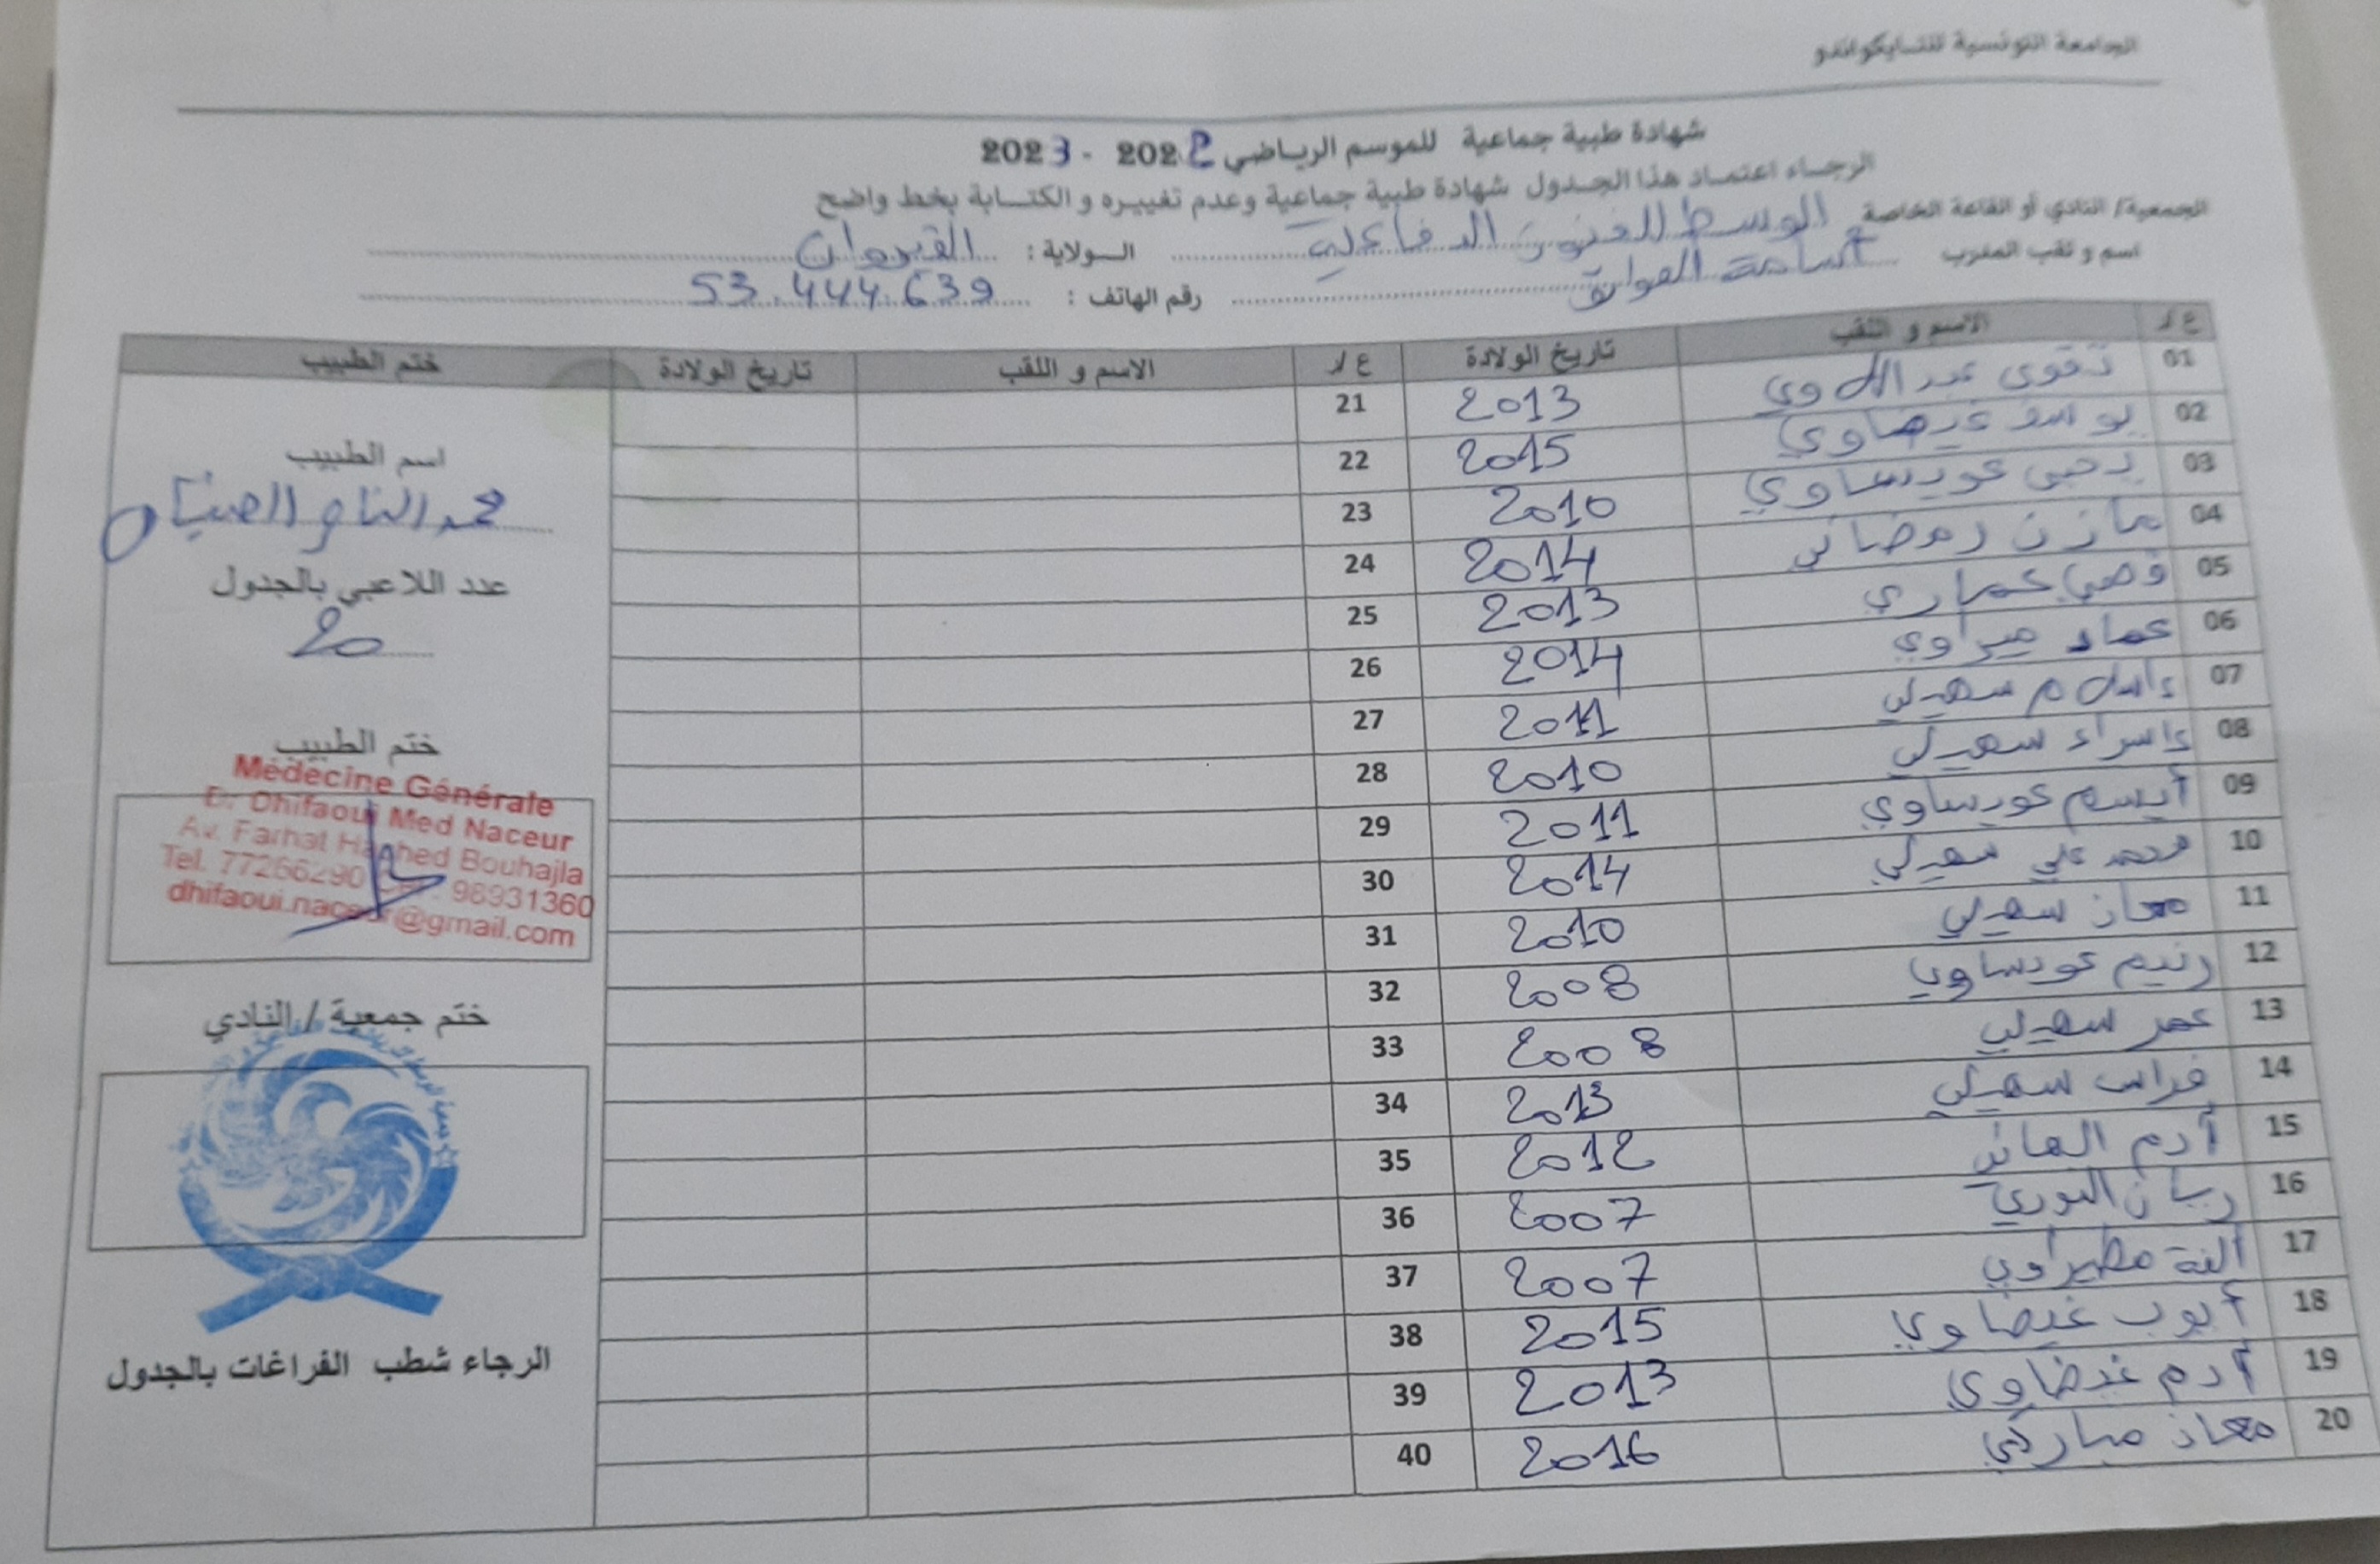 الجامعة التونسية للتايكواندو
شهادة طبية جماعية للموسم الرياضي 2022 - 2023
الرجاء اعتماد هذا الجدول شهادة طبية جماعية وعدم تغييره و الكتابة بخط واضح
الجمعية/ النادي أو القاعة الخاصة الوسط للفنون الدفاعية الولاية : القيروان
اسم و لقب المدرب أسامة رقم الهاتف : 53.444.639
ع/د الاسم و اللقب تاريخ الولادة ع/د الاسم و اللقب تاريخ الولادة ختم الطبيب
01 تقوى 2013 21
02 غيضاوي 2015 22
03 يحيى عويساوي 2010 23
04 مازن رمضاني 2014 24
05 قصي عماري 2013 25
06 عماد 2014 26
07 إسلام سهيلي 2011 27
08 إسراء سهيلي 2010 28
09 أيسم عويساوي 2011 29
10 محمد علي سهيلي 2014 30
11 معاذ سهيلي 2010 31
12 رنيم عويساوي 2008 32
13 عمر سهيلي 2008 33
14 فراس سهيلي 2013 34
15 آدم الهاني 2012 35
16 ريان 2007 36
17 ألفة 2007 37
18 أيوب غيضاوي 2015 38
19 آدم غيضاوي 2013 39
20 معاذ مباركي 2016 40
اسم الطبيب
محمد الناصر الضيفاوي
عدد اللاعبي بالجدول
20
ختم الطبيب
Médecine Générale
Dr Dhifaoui Med Naceur
Av. Farhat Hached Bouhajla
Tel. 77266290 98931360
dhifaoui.naceur@gmail.com
ختم جمعية / النادي
الرجاء شطب الفراغات بالجدول